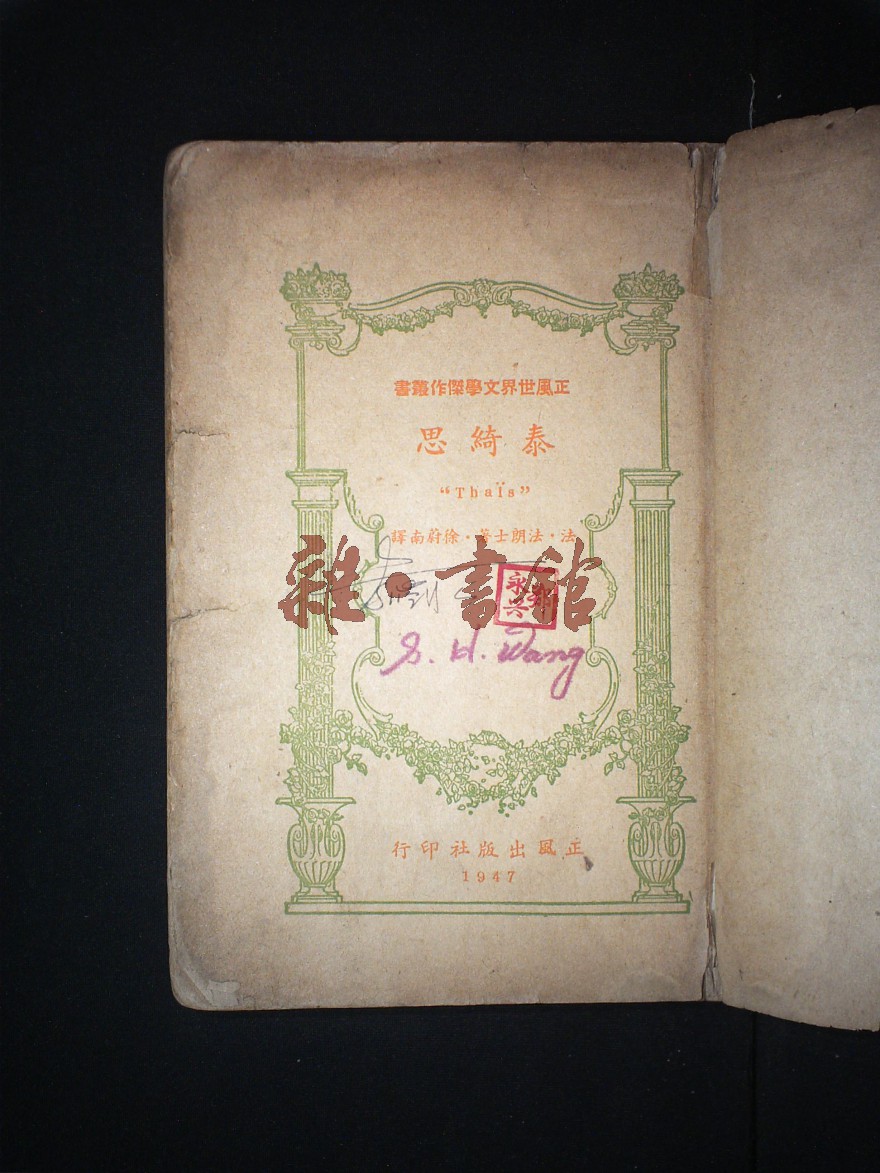 正風世界文學傑作叢書
泰綺思
“Thaïs”
法・法朗士著・徐蔚南譯
雜・書館
永興
S. H. Wang
正風出版社印行
1947